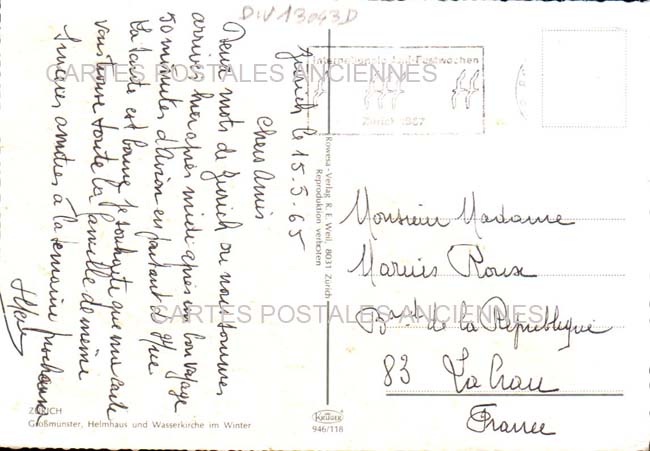 DIV13043D
Internationale Juni-Festwochen
Zürich 1967
CARTES POSTALES ANCIENNES
CARTES POSTALES ANCIENNES
Zurich le 15.5.65
Chers Amis
Deux mots de Zurich ou nous sommes
arrivés hier après midi après un bon voyage
50 minutes d'avion en partant d
La santé est bonne je souhaite que ma carte
vous trouve toute la famille de même
Sincères amitiés à la semaine prochaine
Rowesa-Verlag R. E. Weil, 8031 Zürich
Reproduktion verboten
Monsieur Madame
Marius Roux
Bard de la République
83 La Crau
France
ZÜRICH
Großmünster, Helmhaus und Wasserkirche im Winter
KRÜGER
946/118